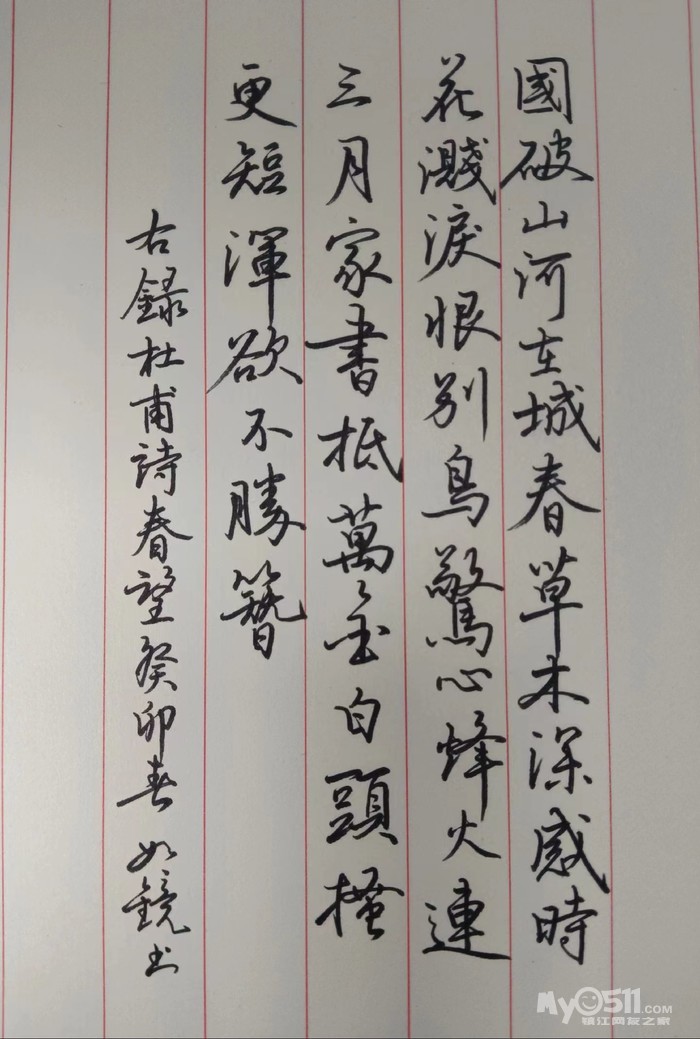 國破山河在城春草木深感時
花濺淚恨別鳥驚心烽火連
三月家書抵萬金白頭搔
更短渾欲不勝簪
右録杜甫詩春望癸卯春如鏡書
My0511.com
镇江网友之家